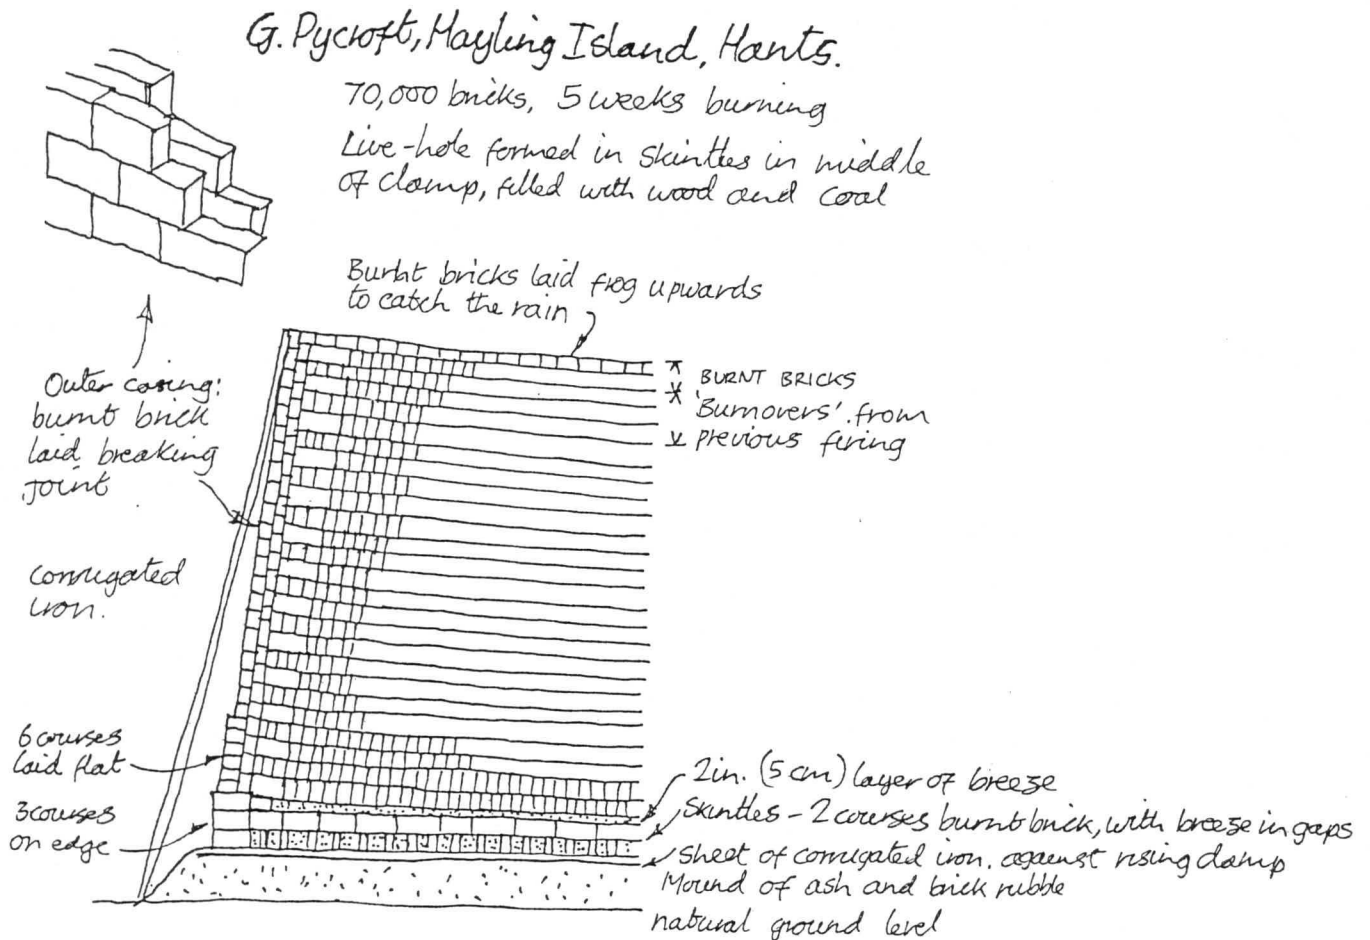 G. Pycroft, Hayling Island, Hants.
70,000 bricks, 5 weeks burning
Live-hole formed in skintles in middle
of clamp, filled with wood and coal
Burnt bricks laid frog upwards
to catch the rain
Outer casing:
burnt brick
laid breaking
joint
BURNT BRICKS
'Burnovers' from
previous firing
corrugated
iron.
6 courses
laid flat
3 courses
on edge
2in. (5 cm) layer of breeze
Skintles - 2 courses burnt brick, with breeze in gaps
Sheet of corrugated iron. against rising damp
Mound of ash and brick rubble
natural ground level